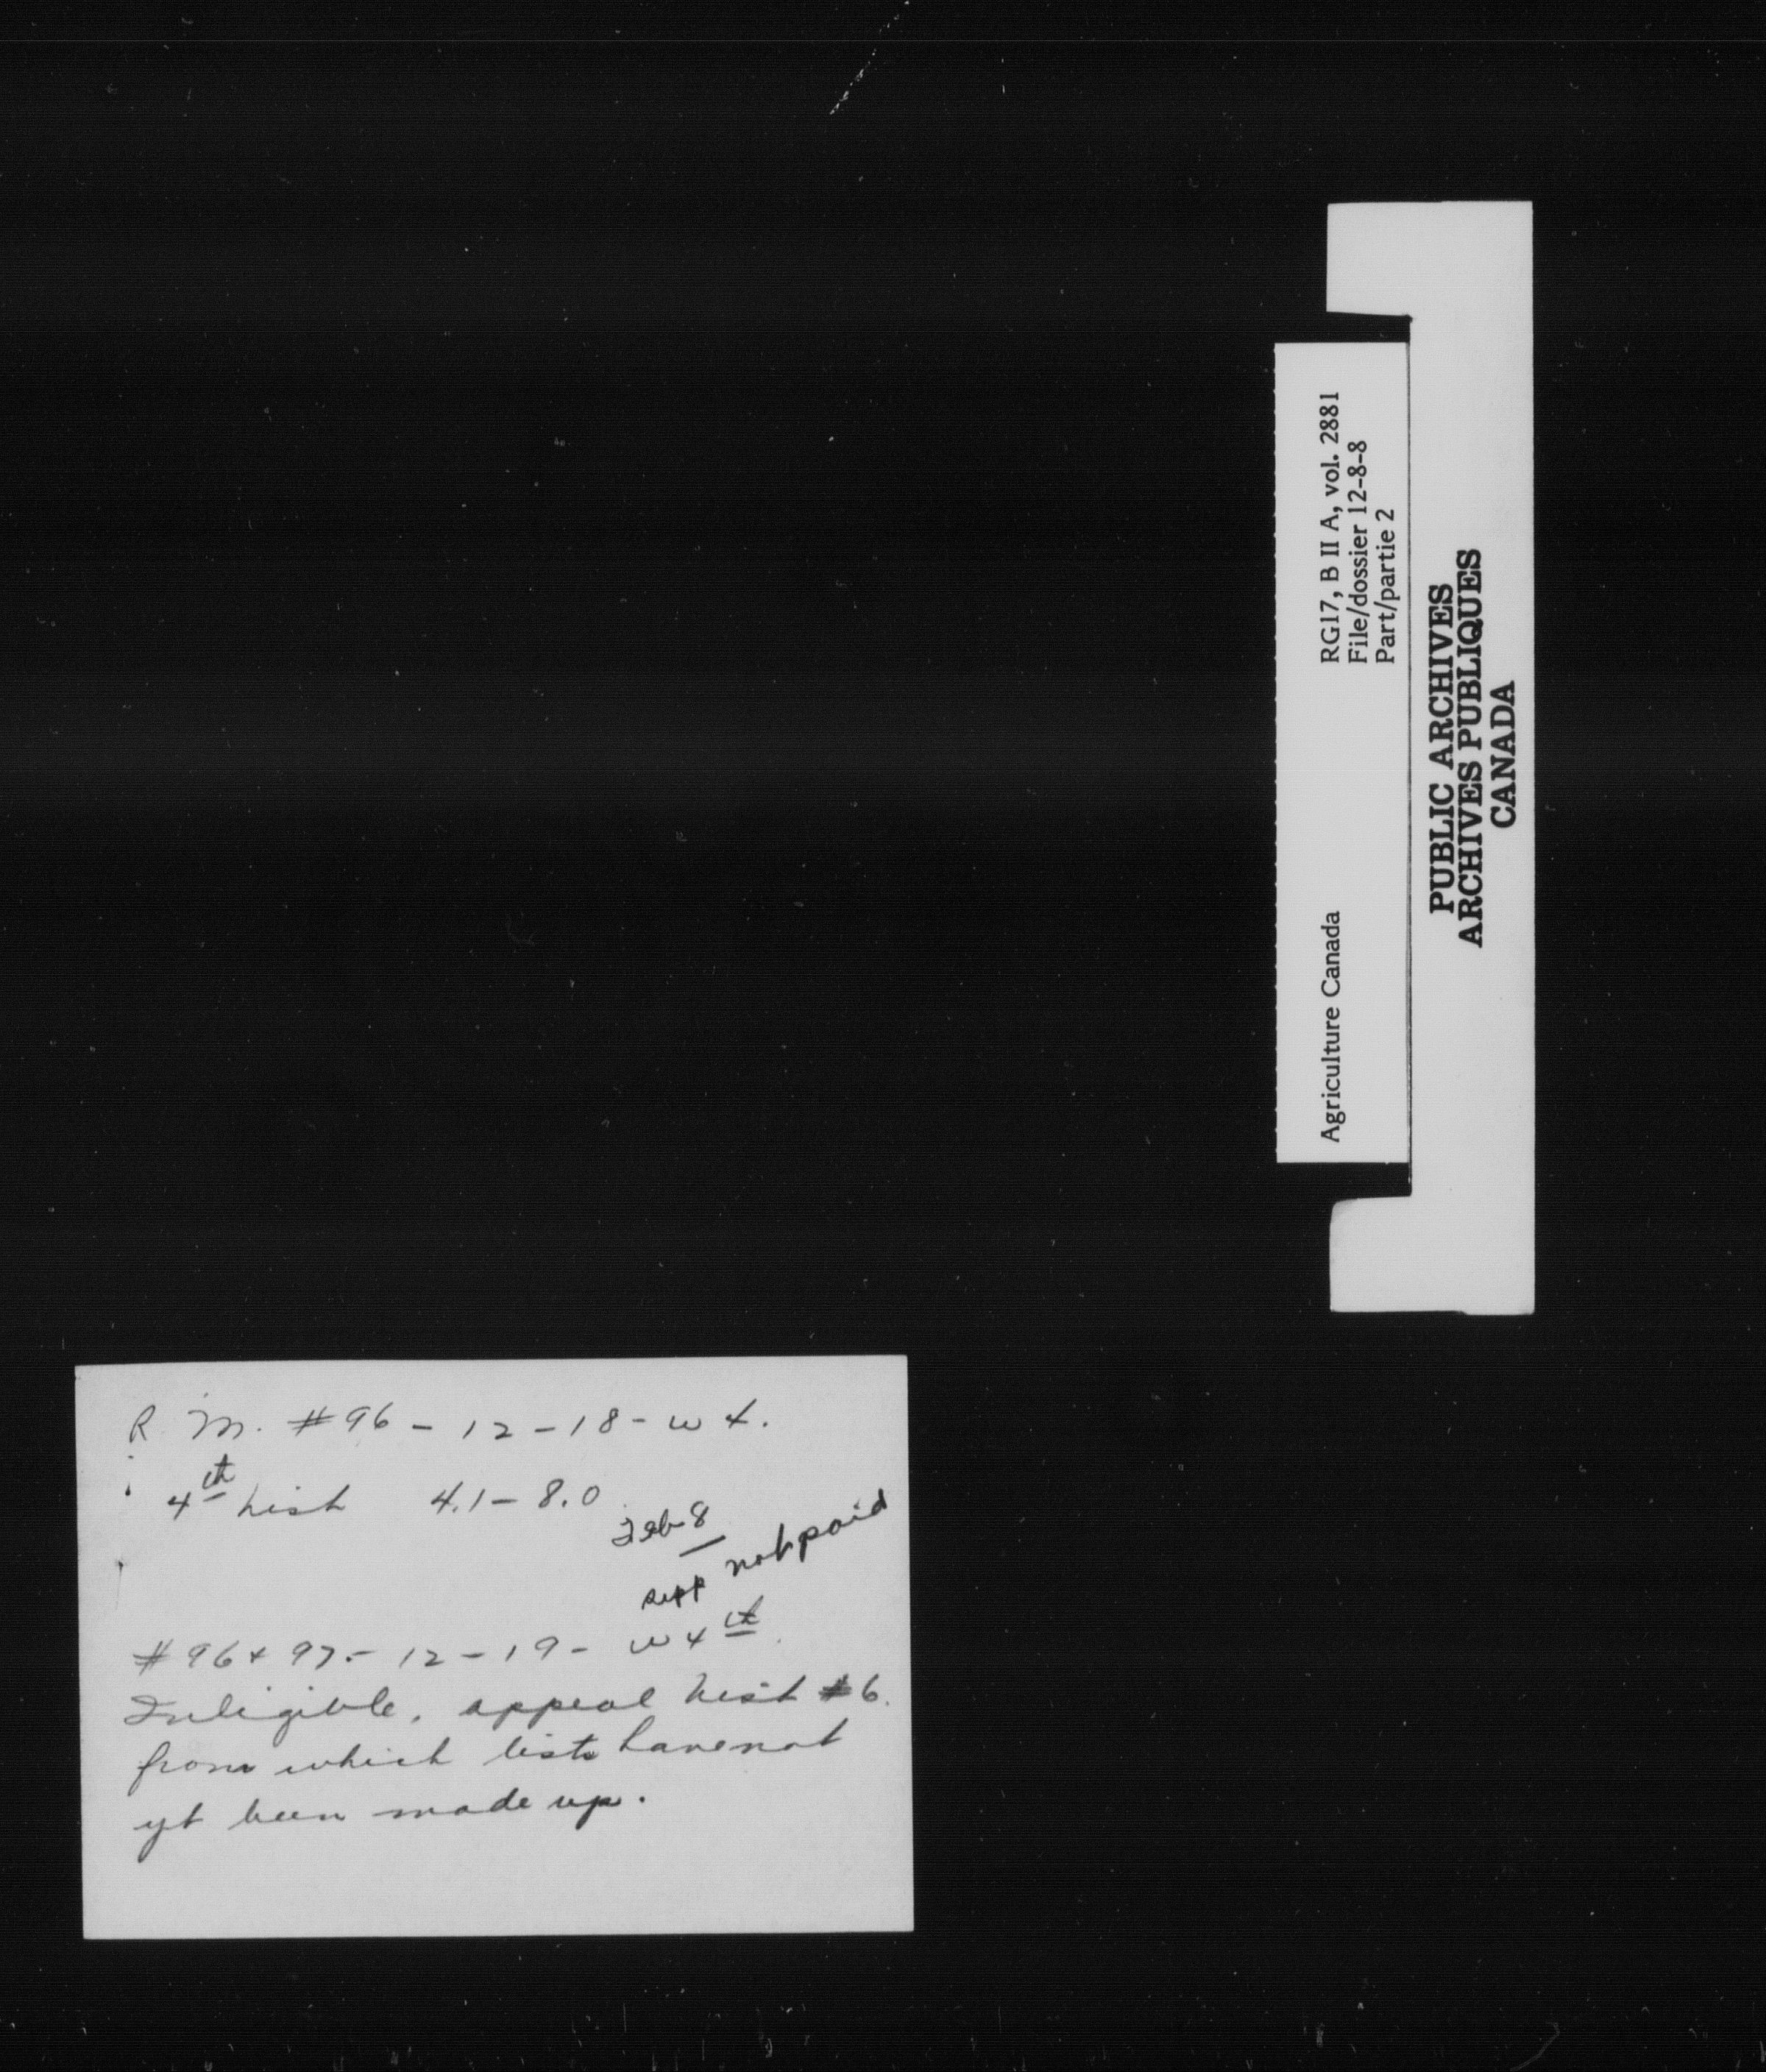 Agriculture Canada
RG17, B II A, vol. 2881
File/dossier 12-8-8
Part/partie 2
PUBLIC ARCHIVES
ARCHIVES PUBLIQUES
CANADA
R. M. #96 - 12 - 18 - w 4.
4th List 4.1 - 8.0
Feb 8
not paid
#96 + 97 - 12 - 19 - w 4th.
Ineligible, appeal List #6.
from which lists have not
yet been made up.